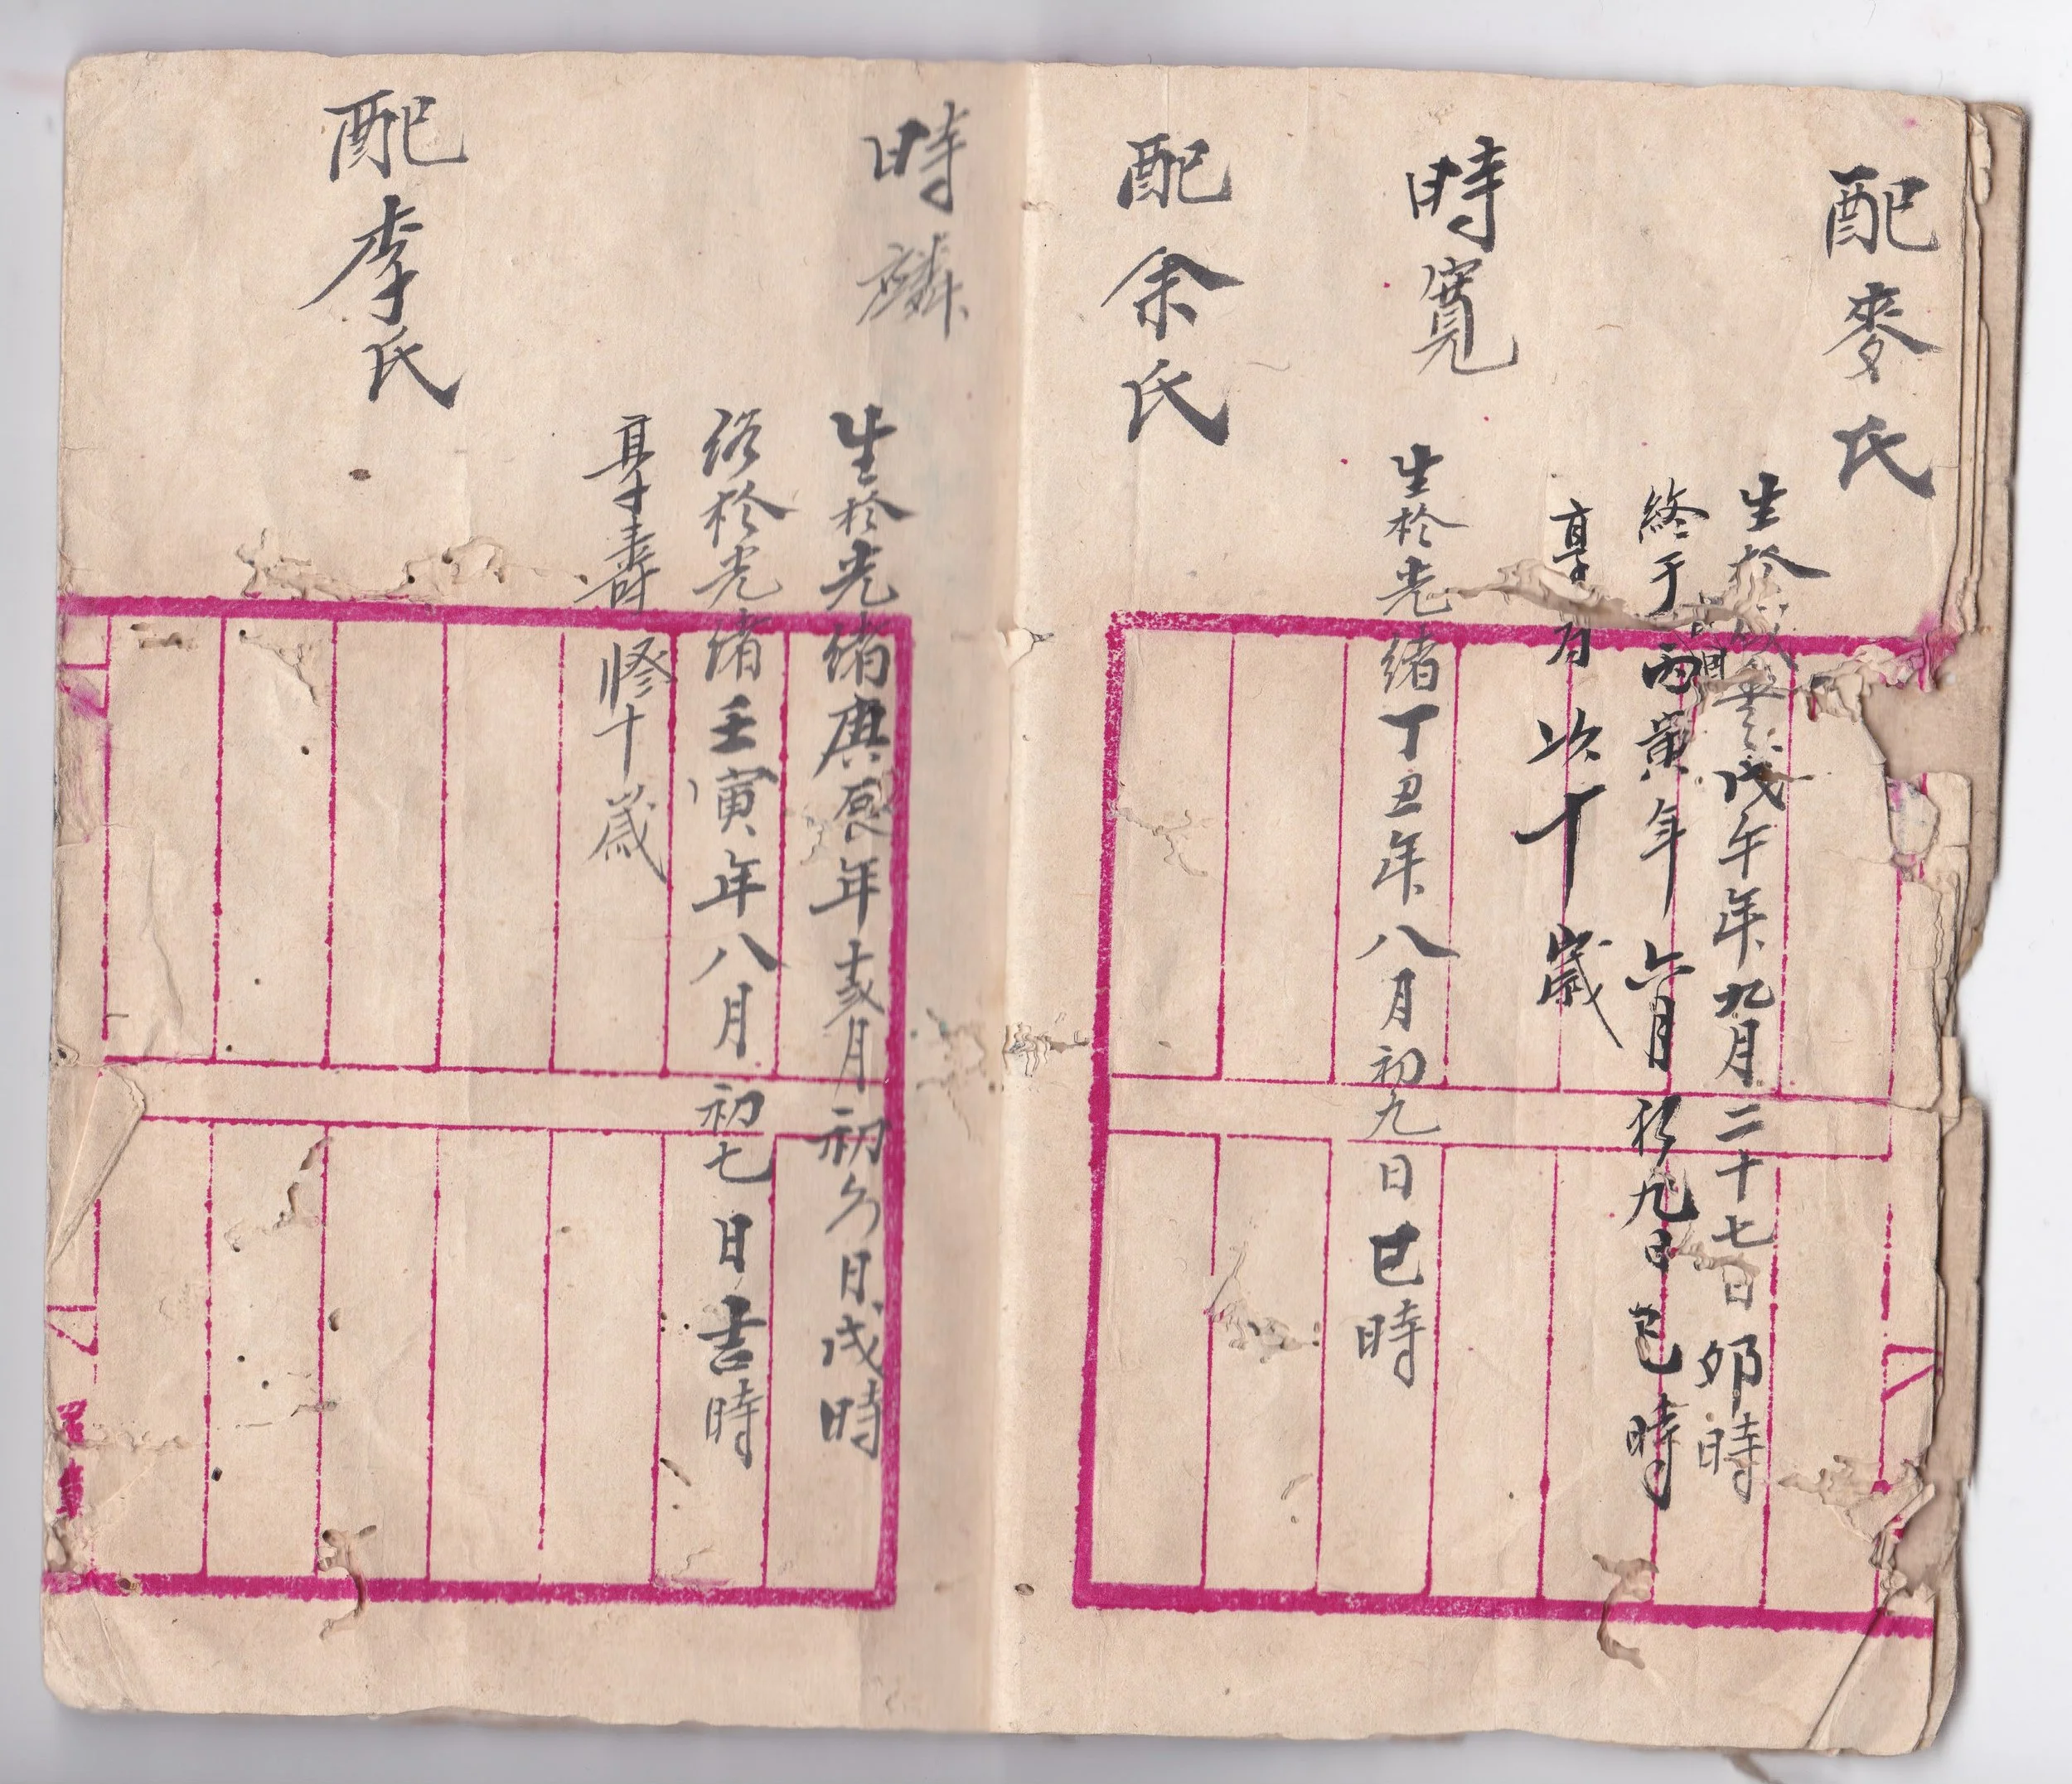 配麥氏
生於咸豊戊午年九月二十七日卯時
終于丙寅年六月初九日巳時
享有 十歲
時寬
生於光緒丁丑年八月初九日巳時
配余氏
時麟
生於光緒庚辰年 月初 日戌時
於光緒壬寅年八月初七日吉時
享壽 十歲
配李氏